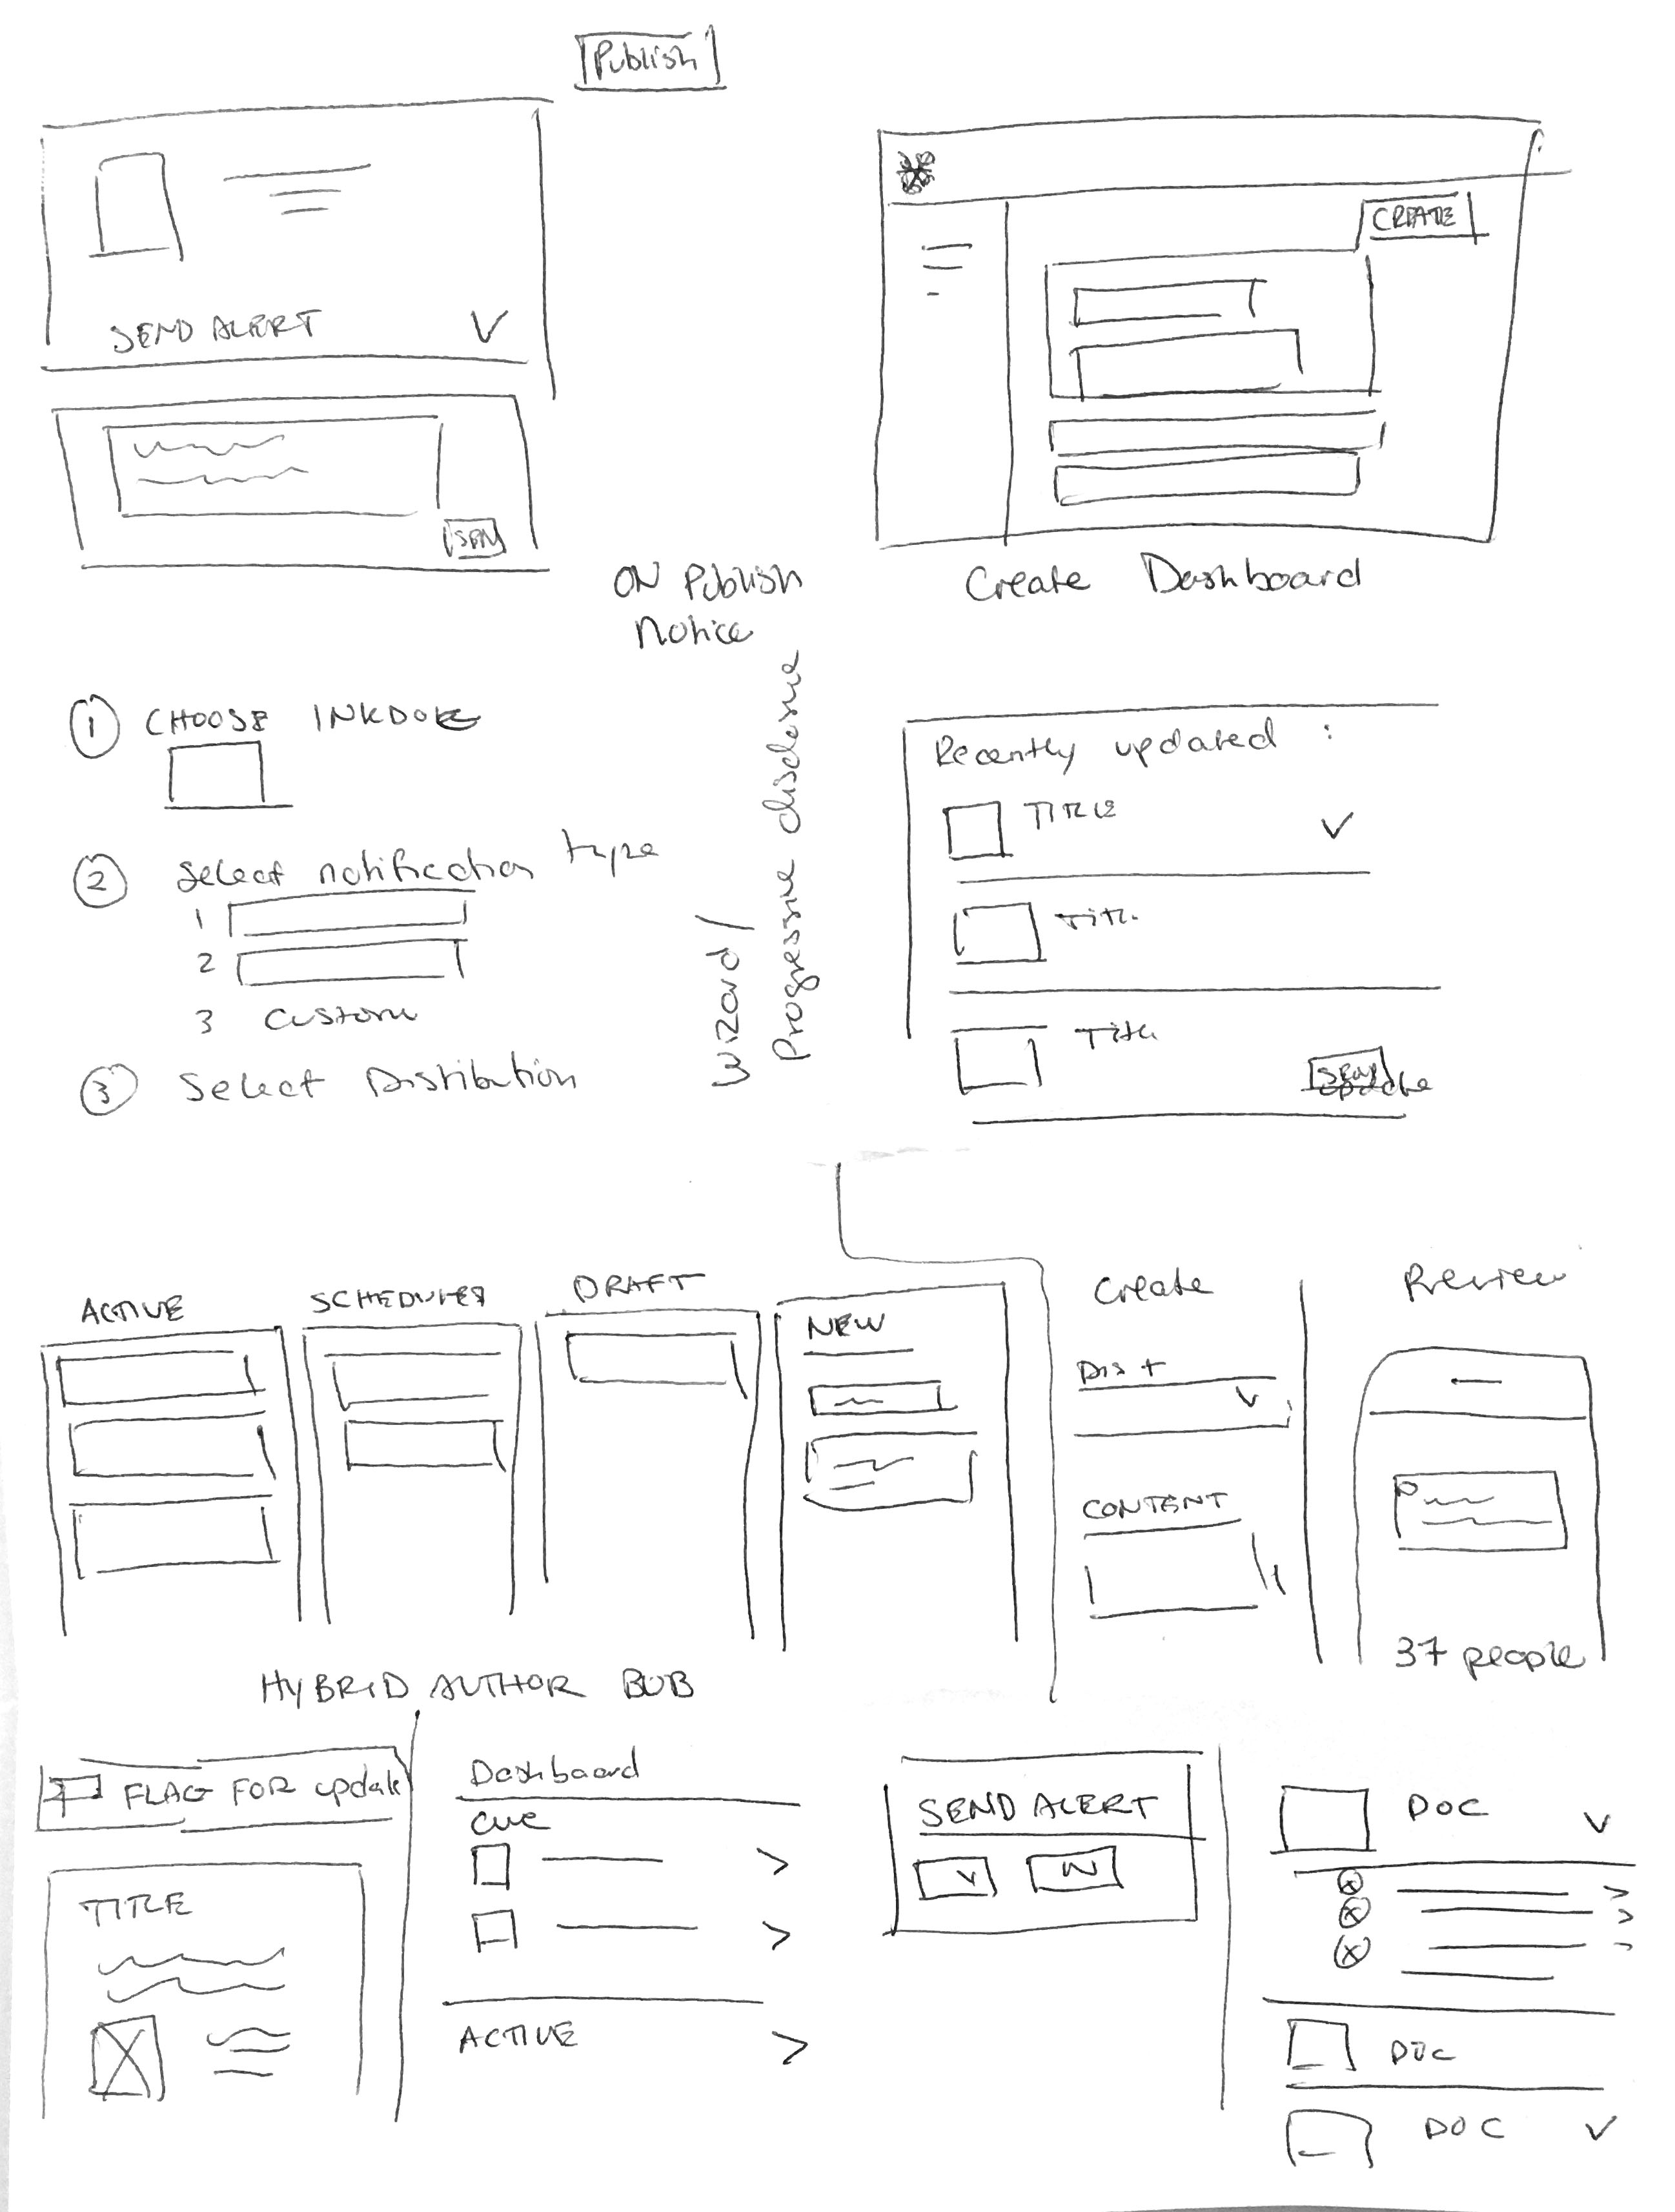 Publish
SEND ALERT
ON Publish
Notice
CREATE
Create Dashboard
1 CHOOSE
2 Select notification type
1
2
3 Custom
3 Select Distibution
Wizard /
Progressive disclosure
Recently updated :
TITLE
Title
Title
update
ACTIVE
DRAFT
NEW
Create
Dist
CONTENT
Preview
37 people
HYBRID AUTHOR
FLAG FOR update
TITLE
Dashboard
cue
ACTIVE
SEND ALERT
DOC
DOC
DOC